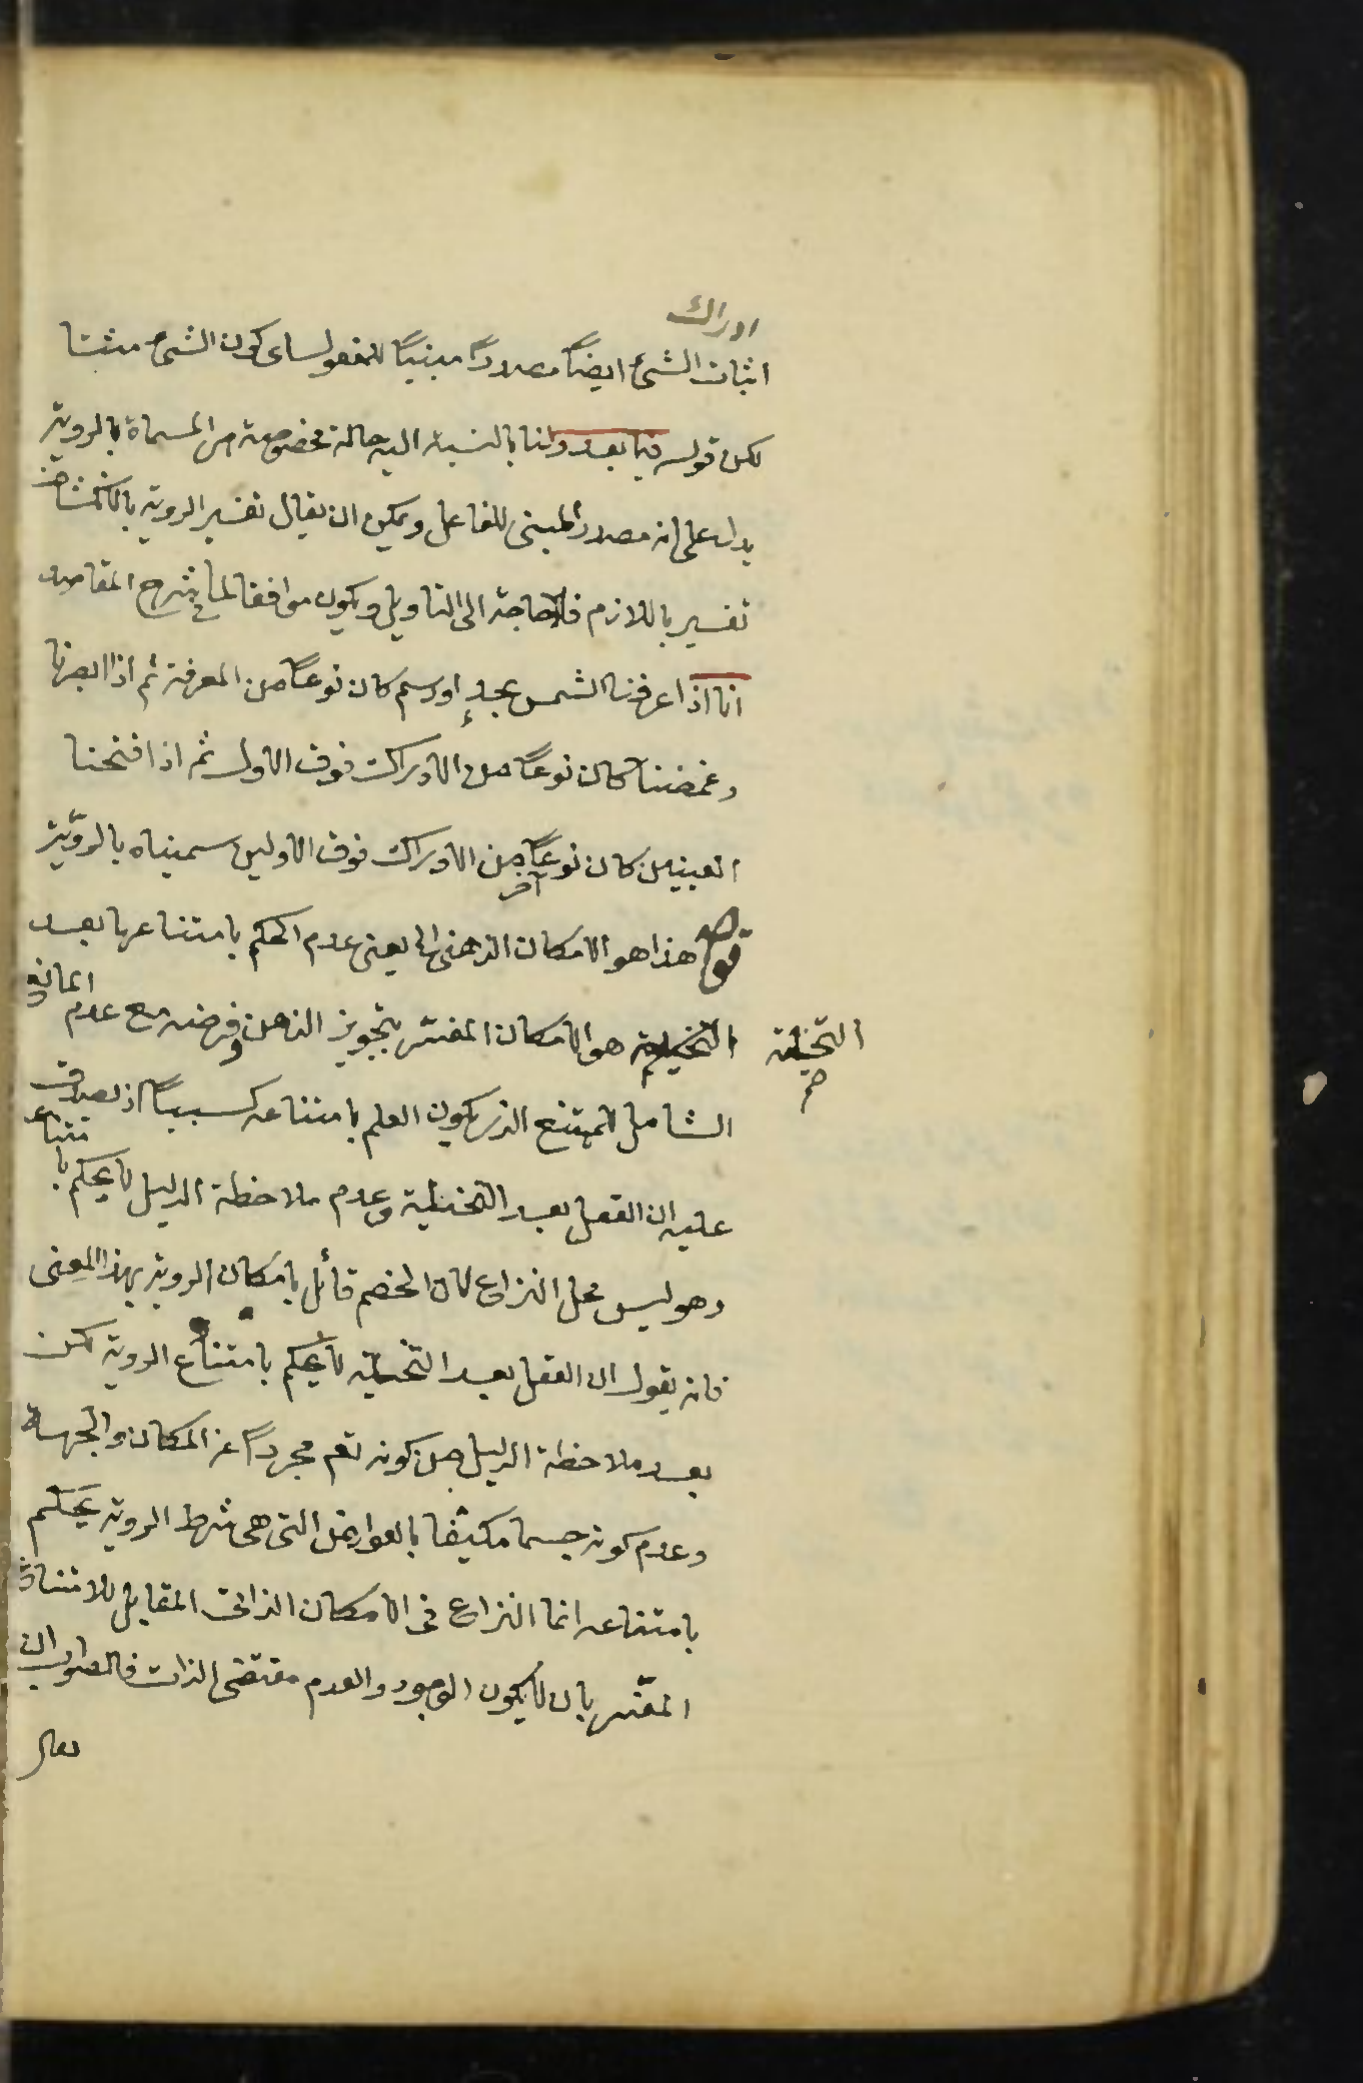 ادراك
اثبات الشئ ايضاً مصدراً مبنياً للمفعول اى كون الشئ مثبتا
لكن قوله فيما بعد ولنا بالنسبة اليه حالة مخصوصة هى المسماة بالروية
يدل على انه مصدر المبنى للفاعل ويمكن ان يقال تفسير الروية بالانكشاف
تفسير باللازم فلا حاجة الى التاويل ويكون موافقا لما فى شرح المقاصد
انا اذا عرفنا الشمس بحد او رسم كان نوعاً من المعرفة ثم اذا ابصرنا
وغمضنا كان نوعاً من الادراك فوق الاول ثم اذا فتحنا
العينين كان نوعاً آخر من الادراك فوق الاولين سميناه بالروّية
قوله هذا هو الامكان الذهنى الخ يعنى عدم الحكم بامتناعها بعد
التخلية هو الامكان المفسّر بتجويز الذهن وفرضه مع عدم المانع
التخلية صح
الشامل للممتنع الذى يكون العلم بامتناعه كسبياً اذ يصدق
عليه ان العقل بعد التخلية وعدم ملاحظة الدليل لا يحكم بامتناعه
وهو ليس محل النزاع لان الخصم قائل بامكان الروية بهذا المعنى
فانه يقول ان العقل بعد التخلية لا يحكم بامتناع الروية لكن
بعد ملاحظة الدليل من كونه تعم مجرداً عن المكان والجهة
وعدم كونه جسما مكيفا بالعوارض التى هى شرط الروية يحكم
بامتناعه انما النزاع فى الامكان الذاتى المقابل للامتناع
المفسّر بان لا يكون الوجود والعدم مقتضى الذات فالصواب ان
يقال